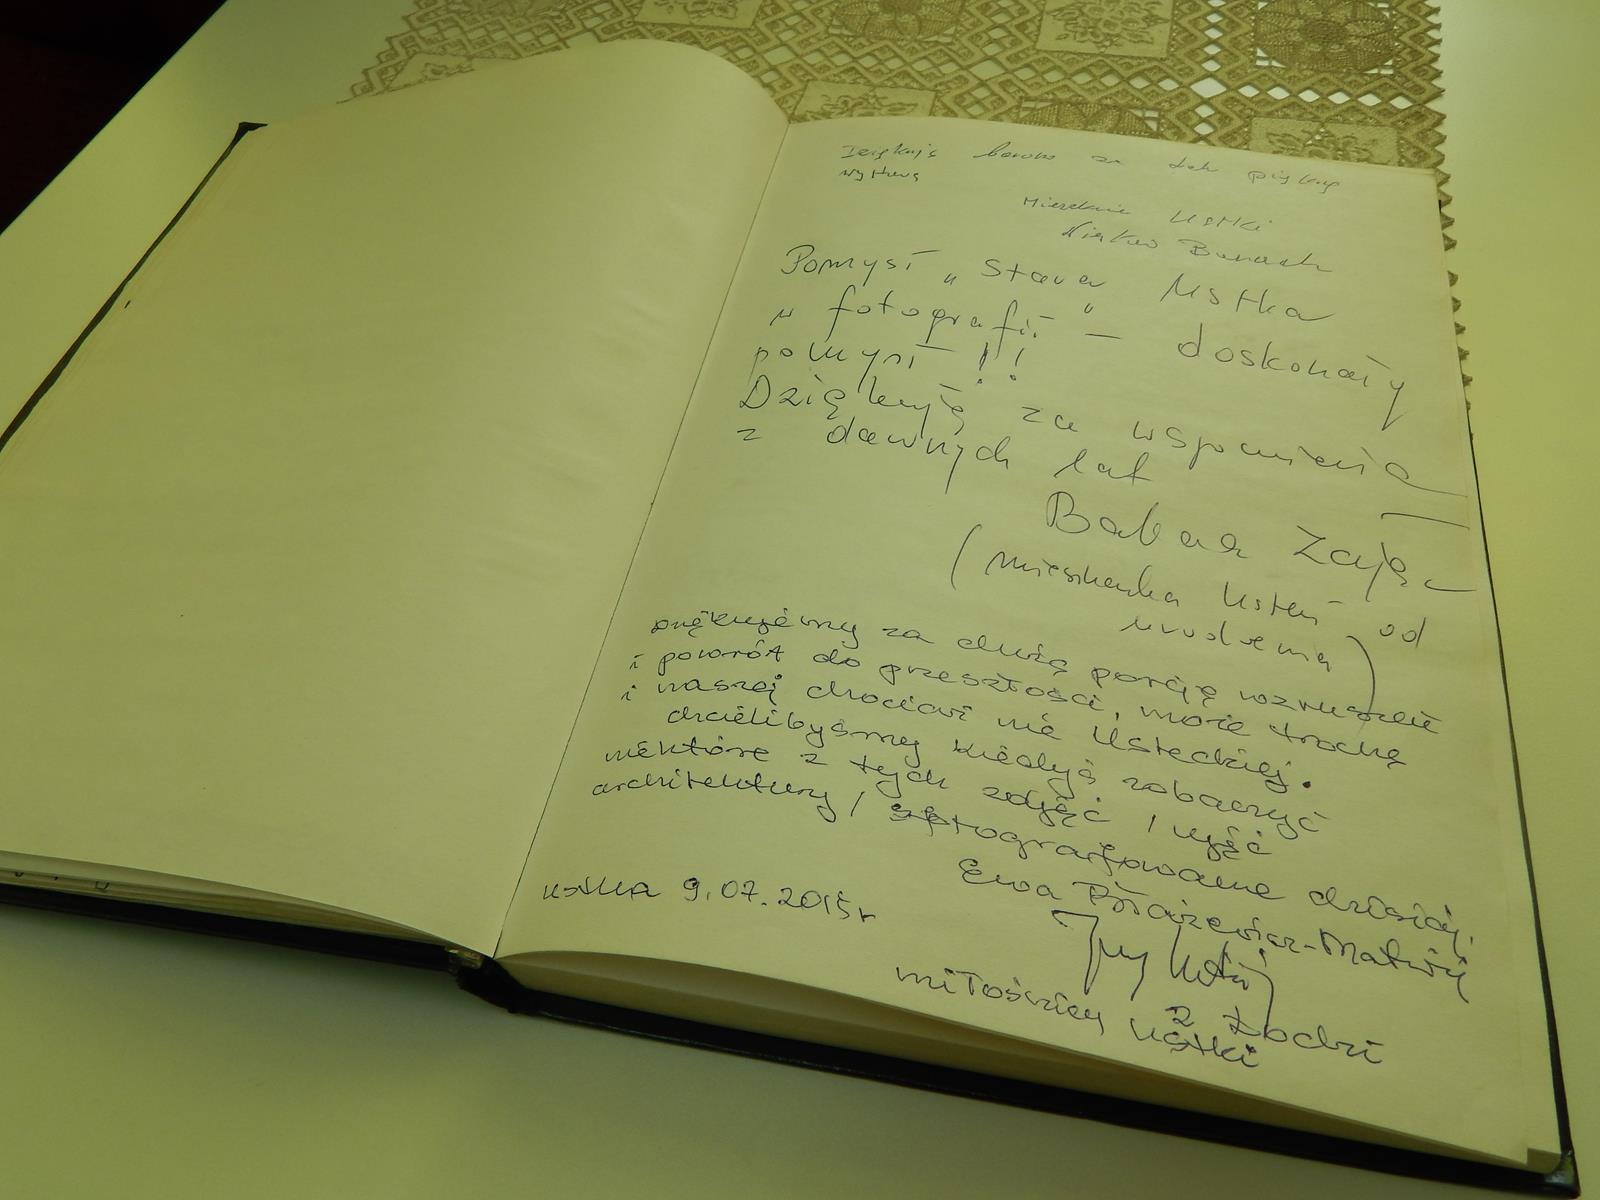 Dziękuję bardzo za tak piękną
wystawę
Mieszkanka Ustki
Banach
Pomysł „Stara Ustka
w fotografii" — doskonały
pomysł !!
Dziękuję za wspomnienia
z dawnych lat
Barbara Zając
(mieszkanka Ustki od
urodzenia)
Dziękujemy za dużą porcję wzruszeń
i powrót do przeszłości, może trochę
i naszej chociaż nie Usteckiej.
chcielibyśmy kiedyś zobaczyć
niektóre z tych zdjęć i ujęć
architektury, fotografowane dzisiaj.
Ewa Błażewicz-Matwij
Ustka 9.07.2015r
z Łodzi
miłośnicy Ustki